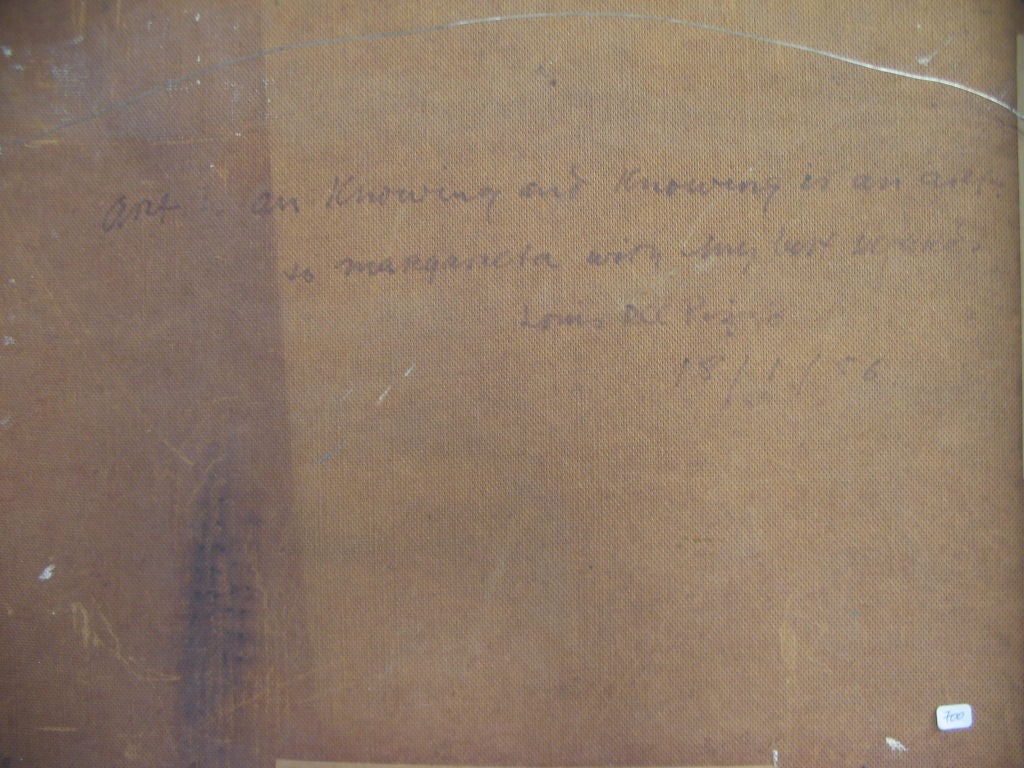 art is an Knowing and Knowing is an art.
to margareta with my best
Louis Del
18/1/56
700